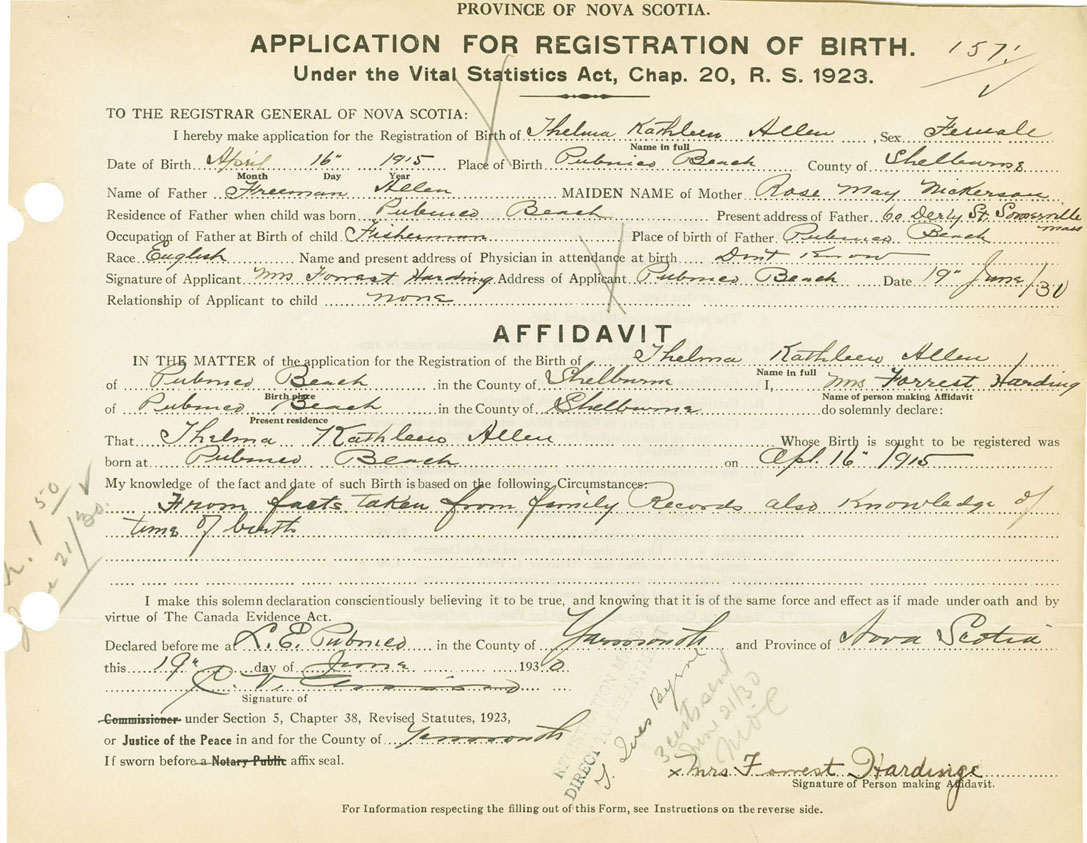 PROVINCE OF NOVA SCOTIA.
APPLICATION FOR REGISTRATION OF BIRTH. 1571
Under the Vital Statistics Act, Chap. 20, R. S. 1923.
TO THE REGISTRAR GENERAL OF NOVA SCOTIA:
I hereby make application for the Registration of Birth of Thelma Kathleen Allen, Sex Female
Name in full
Date of Birth April 16" 1915 Place of Birth Pubnico Beach County of Shelburne
Month Day Year
Name of Father Freeman Allen MAIDEN NAME of Mother Rose May Nickerson
Residence of Father when child was born Pubnico Beach Present address of Father 60 Derby St. Somerville
Mass
Occupation of Father at Birth of child Fisherman Place of birth of Father Pubnico Beach
Race English Name and present address of Physician in attendance at birth Don't Know
Signature of Applicant Mrs Forrest Harding Address of Applicant Pubnico Beach Date 19" June/30
Relationship of Applicant to child none
AFFIDAVIT
IN THE MATTER of the application for the Registration of the Birth of Thelma Kathleen Allen
Name in full
of Pubnico Beach in the County of Shelburne I, Mrs Forrest Harding
Birth place Name of person making Affidavit
of Pubnico Beach in the County of Shelburne do solemnly declare:
Present residence
That Thelma Kathleen Allen Whose Birth is sought to be registered was
born at Pubnico Beach on Apl. 16" 1915
My knowledge of the fact and date of such Birth is based on the following Circumstances:
From facts taken from family Records also Knowledge of
time of birth
1 50
21/30
I make this solemn declaration conscientiously believing it to be true, and knowing that it is of the same force and effect as if made under oath and by
virtue of The Canada Evidence Act.
Declared before me at L. E. Pubnico in the County of Yarmouth and Province of Nova Scotia
this 19" day of June 1930
Signature of
Commissioner under Section 5, Chapter 38, Revised Statutes, 1923,
or Justice of the Peace in and for the County of Yarmouth
If sworn before a Notary Public affix seal.
DIRECT TO
June 21/30
x Mrs Forrest Hardinge
Signature of Person making Affidavit.
For Information respecting the filling out of this Form, see Instructions on the reverse side.